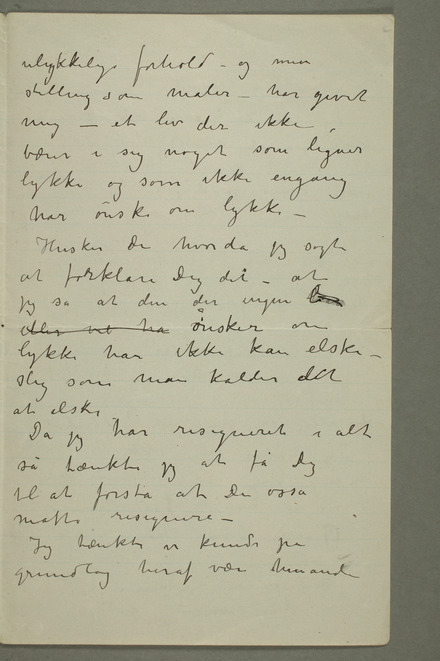 ulykkelige forhold – og min
stilling som maler – har givet
mig – et liv der ikke
bærer i sig noget som ligner
lykke og som ikke engang
har önske om lykke –
Husker Du hvorda jeg søgte
at forklare Dig det – at
jeg sa at den der ingen
eller vil ha önsker om
lykke har ikke kan elske –
slig som man kalder det
at elske
Da jeg har resigneret i alt
så tænkte jeg at få Dig
til at forstå at Du også
måtte resignere –
Jeg tænkte vi kunde på
grundlag heraf være hinande